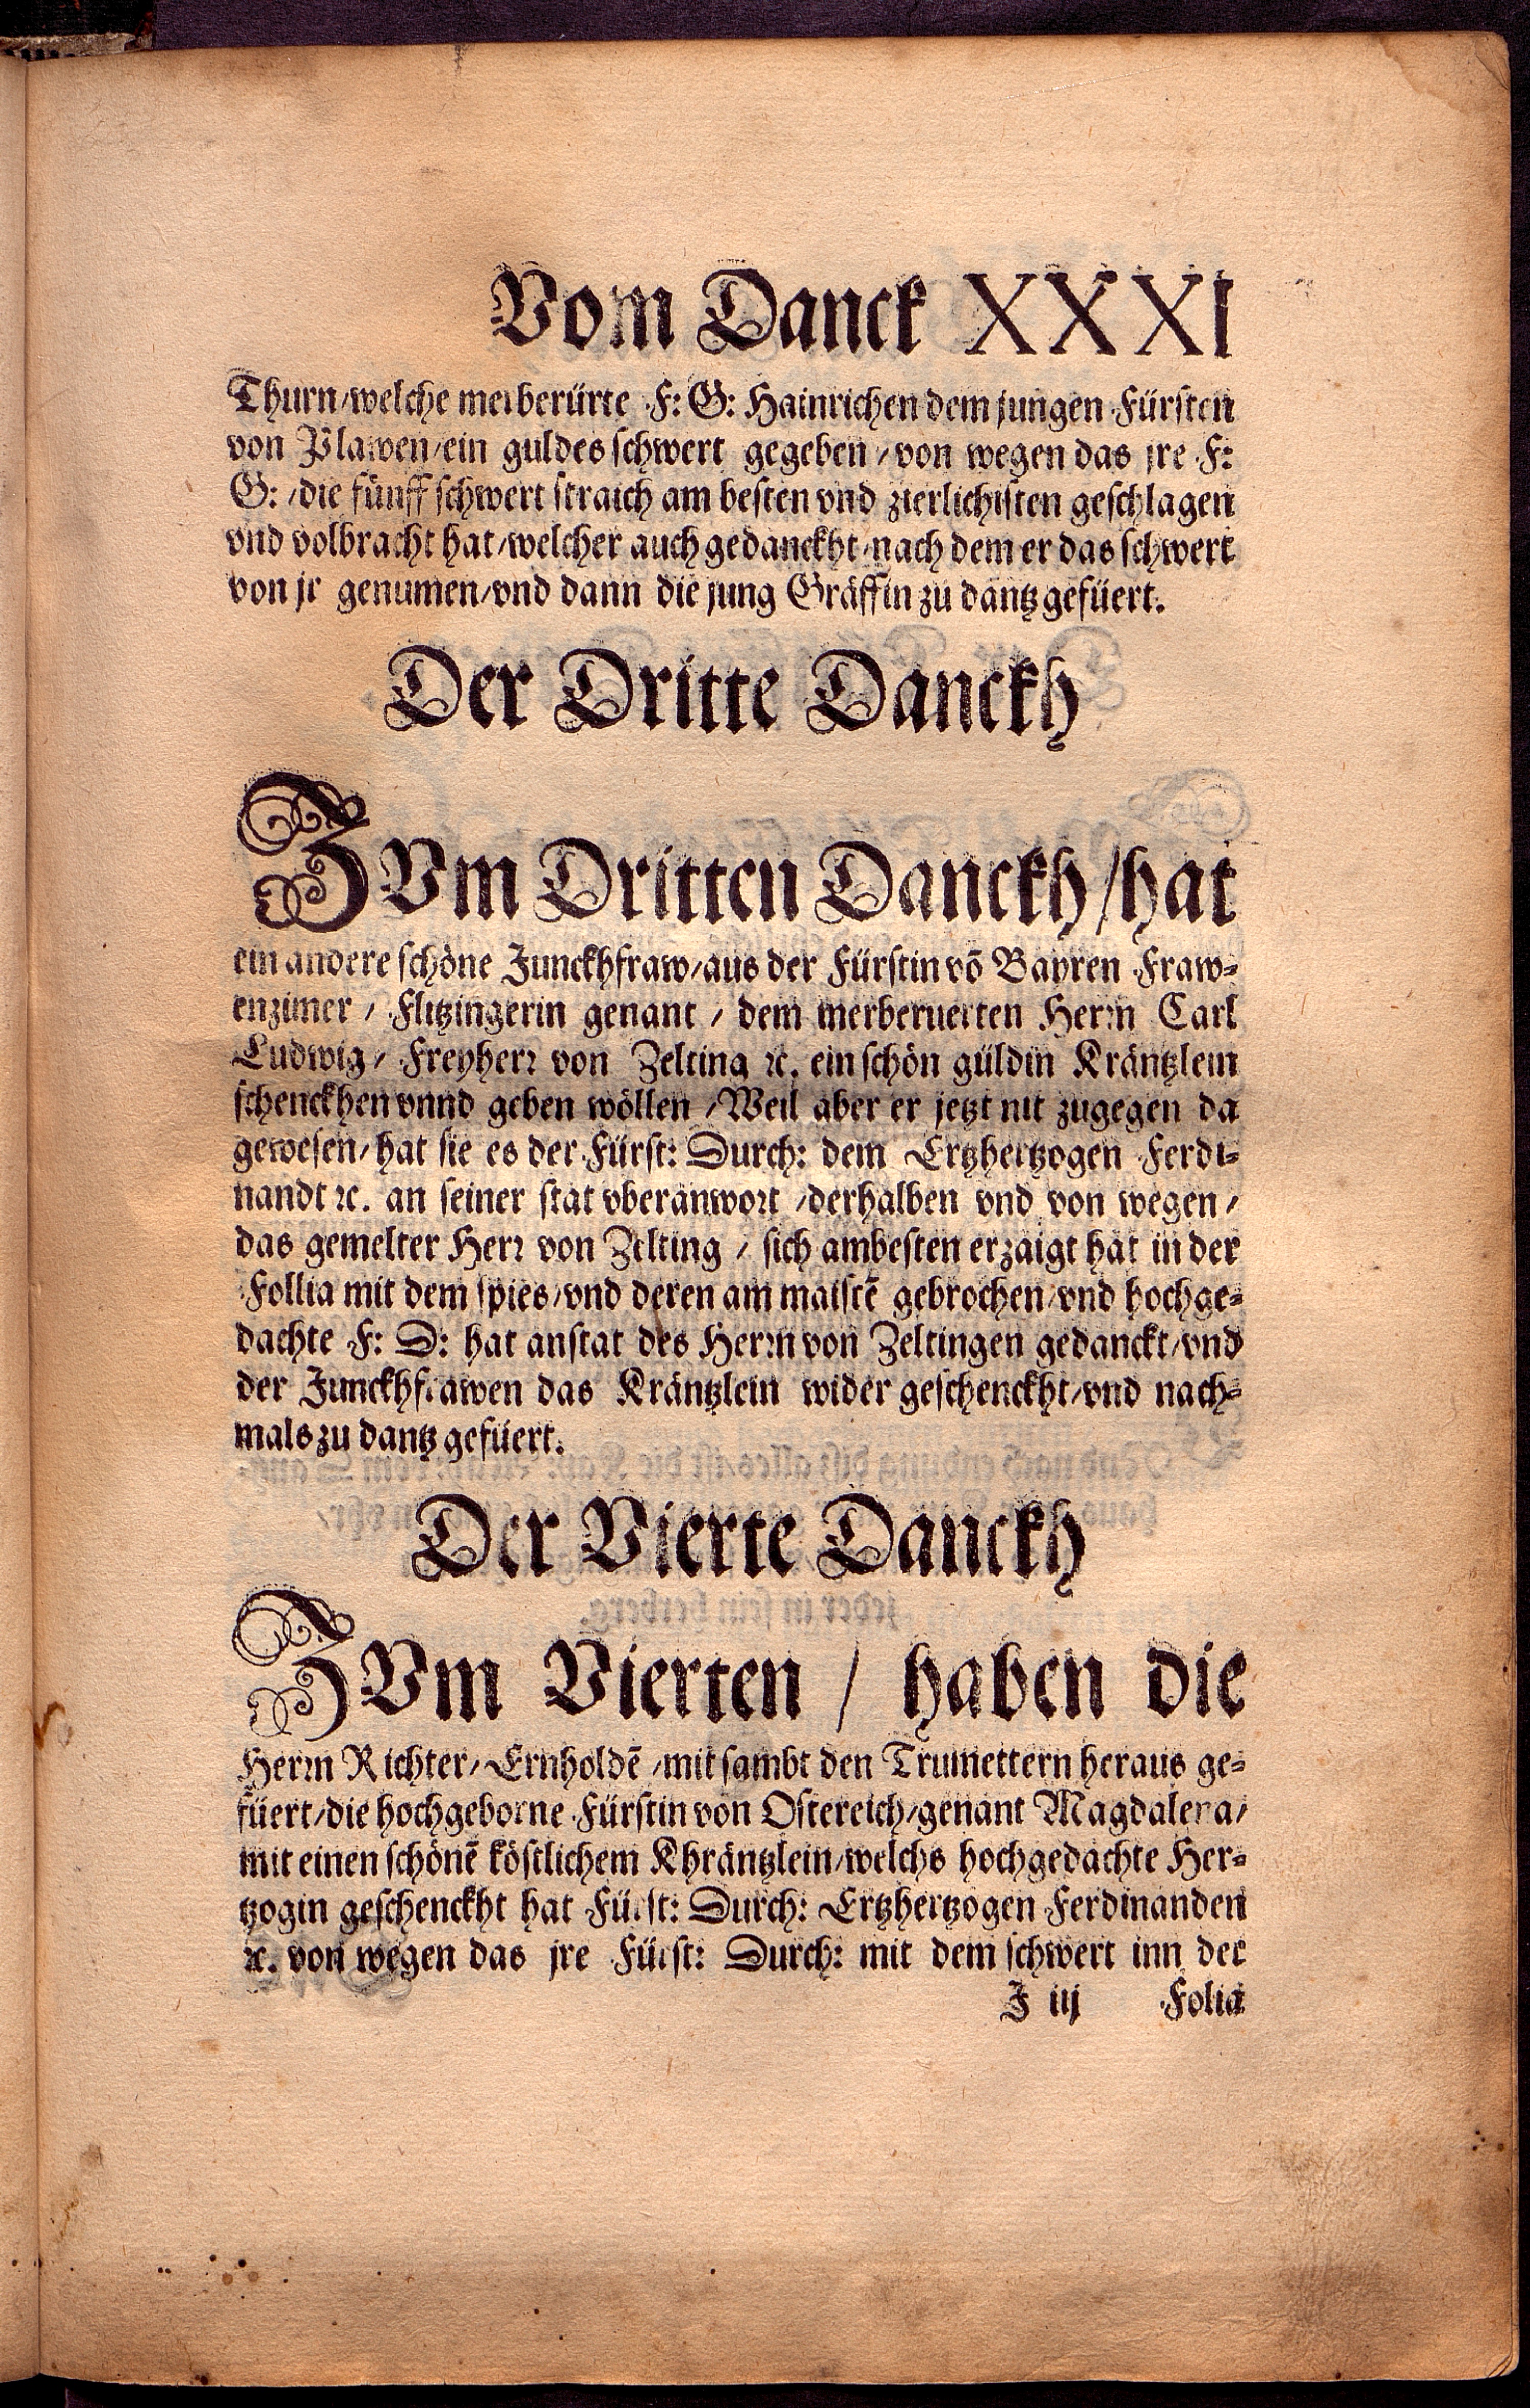 Vom Danck XXXI
Thurn/welche merberürte F: G: Hainrichen dem jungen Fürsten
von Plawen/ein guldes schwert gegeben/von wegen das jre F:
G:/die fünff schwert straich am besten vnd zierlichisten geschlagen
vnd volbracht hat/welcher auch gedanckht/nach dem er das schwert
von jr genumen/vnd dann die jung Gräffin zu dantz gefüert.
Der Dritte Danckh
ZVm Dritten Danckh/hat
ein andere schöne Junckhfraw/aus der Fürstin võ Bayren Fraw-
enzimer/Flitzingerin genant/dem merberuerten Herrn Carl
Ludwig/Freyherr von Zelting ꝛc. ein schön güldin Kräntzlein
schenckhen vnnd geben wöllen/Weil aber er jetzt nit zugegen da
gewesen/hat sie es der Fürst: Durch: dem Ertzhertzogen Ferdi-
nandt ꝛc. an seiner stat vberanwort/derhalben vnd von wegen/
das gemelter Herr von Zelting/sich ambesten erzaigt hat in der
Follia mit dem spies/vnd deren am maistẽ gebrochen/vnd hochge-
dachte F: D: hat anstat des Herrn von Zeltingen gedanckt/vnd
der Junckhfrawen das Kräntzlein wider geschenckht/vnd nach-
mals zu dantz gefüert.
Der Vierte Danckh
ZVm Vierten / haben die
Herrn Richter/Ernholdẽ/mit sambt den Trumettern heraus ge-
füert/die hochgeborne Fürstin von Ostereich/genant Magdalena/
mit einen schönẽ köstlichem Khräntzlein/welchs hochgedachte Her-
tzogin geschenckht hat Fürst: Durch: Ertzhertzogen Ferdinanden
ꝛc. von wegen das jre Fürst: Durch: mit dem schwert inn der
J iij Folia